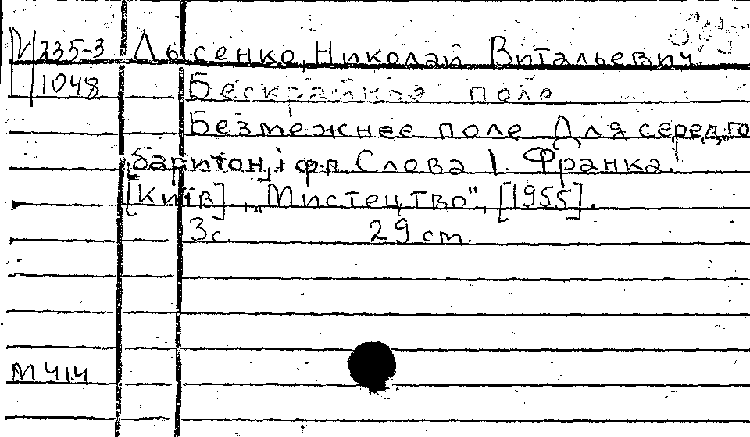 М 335-3 Лысенко, Николай Витальевич
1048 Бескрайнее поле
Безмежнеє поле Для серед. го
баритон, і фп. Слова І. Франка.
[Київ], „Мистецтво", [1955].
3с. 29 cm.
М 414